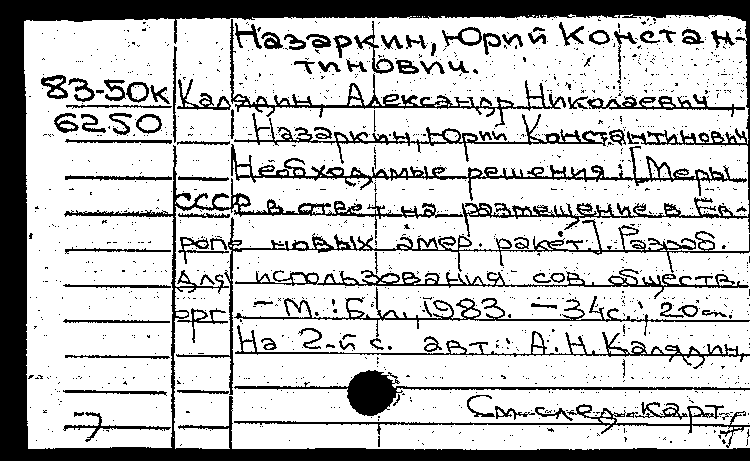 Назаркин, Юрий Констан-
тинович.
83-50к Калядин, Александр Николаевич,
6250 Назаркин, Юрий Константинович
Необходимые решения: [Меры
СССР в ответ на размещение в Ев-
ропе новых амер. ракет]. Разраб.
для использования сов. обществ.
орг. - М.: Б.и., 1983. - 34с.; 20см.
На 2-й с. авт.: А.Н. Калядин,
См. след. карт.